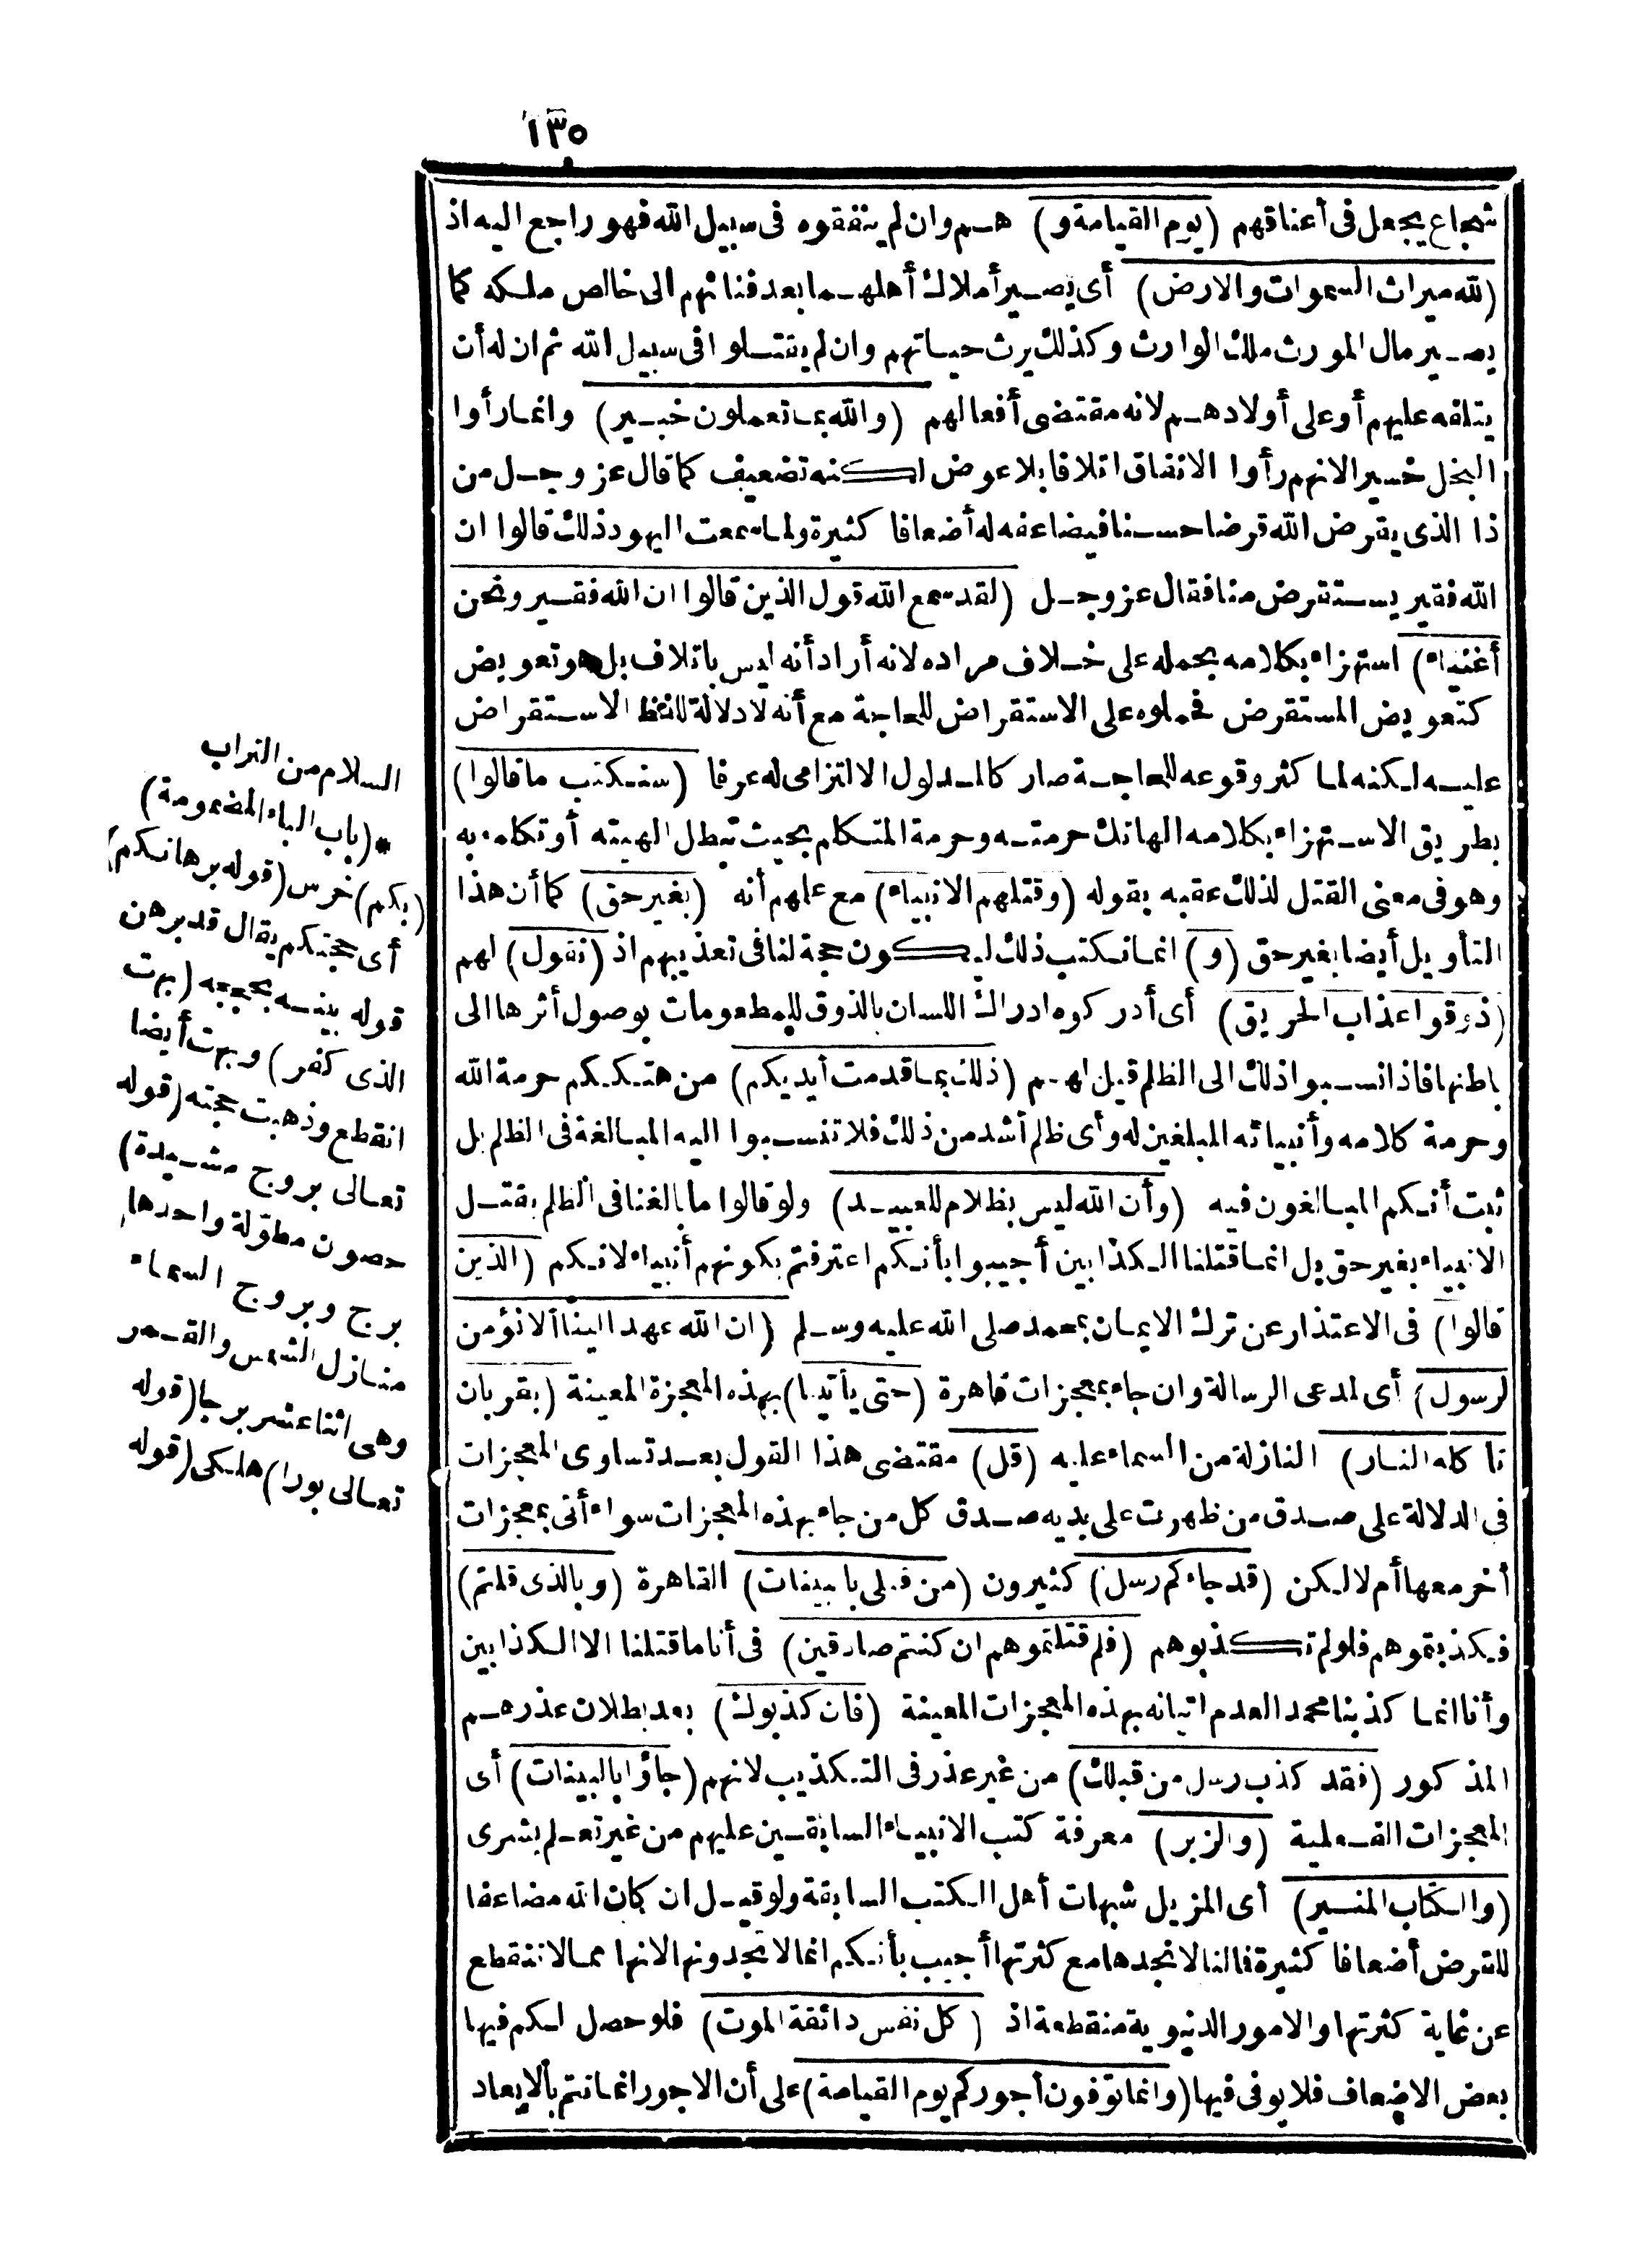 ١٣٥
شجاع يجعل فى أعناقهم (يوم القيامة و) هم وان لم ينفقوه فى سبيل الله فهو راجع اليه اذ
(لله ميراث السموات والارض) أى يصير أملاك أهلهما بعد فنائهم الى خالص ملكه كما
يصير مال المورث ملك الوارث وكذلك يرث حياتهم وان لم يقتلوا فى سبيل الله ثم ان له أن
يتلفه عليهم أو على أولادهم لانه مقتضى أفعالهم (والله بما تعملون خبير) وانما رأوا
البخل خسيرا لانهم رأوا الانفاق اتلافا بلا عوض لكنه تضعيف كما قال عز وجل من
ذا الذى يقرض الله قرضا حسنا فيضاعفه له أضعافا كثيرة ولما سمعت اليهود ذلك قالوا ان
الله فقير يستقرض منا فقال عز وجل (لقد سمع الله قول الذين قالوا ان الله فقير ونحن
أغنياء) استهزاء بكلامه بحمله على خلاف مراده لانه أراد أنه ليس باتلاف بل هو تعويض
كتعويض المستقرض فحملوه على الاستقراض للحاجة مع أنه لا دلالة للفظ الاستقراض
عليه لكنه لما كثر وقوعه للحاجة صار كالمدلول الالتزامى له عرفا (سنكتب ما قالوا)
بطريق الاستهزاء بكلامه الهاتك حرمته وحرمة المتكلم بحيث تبطل الهيته أو تكلمه به
وهو فى معنى القتل لذلك عقبه بقوله (وقتلهم الانبياء) مع علمهم أنه (بغير حق) كما أن هذا
التأويل أيضا بغير حق (و) انما نكتب ذلك ليكون حجة لنا فى تعذيبهم اذ (نقول) لهم
(ذوقوا عذاب الحريق) أى أدركوه ادراك اللسان بالذوق للمطعومات بوصول أثرها الى
باطنها فاذا نسبوا ذلك الى الظلم قيل لهم (ذلك بما قدمت أيديكم) من هتككم حرمة الله
وحرمة كلامه وأنبيائه المبلغين له وأى ظلم أشد من ذلك فلا تنسبوا اليه المبالغة فى الظلم بل
ثبت أنكم المبالغون فيه (وأن الله ليس بظلام للعبيد) ولو قالوا ما بالغنا فى الظلم بقتل
الانبياء بغير حق بل انما قتلنا الكذابين أجيبوا بأنكم اعترفتم بكونهم أنبياء لانكم (الذين
قالوا) فى الاعتذار عن ترك الايمان بمحمد صلى الله عليه وسلم (ان الله عهد الينا ألا نؤمن
لرسول) أى لمدعى الرسالة وان جاء بمعجزات قاهرة (حتى يأتينا) بهذه المعجزة المعينة (بقربان
تأكله النار) النازلة من السماء عليه (قل) مقتضى هذا القول بعد تساوى المعجزات
فى الدلالة على صدق من ظهرت على يديه صدق كل من جاء بهذه المعجزات سواء أتى بمعجزات
أخر معها أم لا لكن (قد جاءكم رسل) كثيرون (من قبلى بالبينات) القاهرة (وبالذى قلتم)
فكذبتموهم فلو لم تكذبوهم (فلم قتلتموهم ان كنتم صادقين) فى أنا ما قتلنا الا الكذابين
وأنا انما كذبنا محمدا لعدم اتيانه بهذه المعجزات المعينة (فان كذبوك) بعد بطلان عذرهم
المذكور (فقد كذب رسل من قبلك) من غير عذر فى التكذيب لانهم (جاؤا بالبينات) أى
المعجزات الفعلية (والزبر) معرفة كتب الانبياء السابقين عليهم من غير تعلم بشرى
(والكتاب المنير) أى المزيل شبهات أهل الكتب السابقة ولو قيل ان كان الله مضاعفا
للقرض أضعافا كثيرة فالنا لا نجدها مع كثرتها أجيب بأنكم انما لا تجدونها لانها مما لا تنقطع
عن غاية كثرتها والامور الدنيوية منقطعة اذ (كل نفس ذائقة الموت) فلو حصل لكم فيها
بعض الاضعاف فلا يوفى فيها (وانما توفون أجوركم يوم القيامة) على أن الاجور انما تتم بالابعاد
السلام من التراب
*(باب الباء المضمومة)
(بكم) خرس (قوله برهانكم)
أى حجتكم يقال قد برهن
قوله بينه بحججه (بهت
الذى كفر) وبهت أيضا
انقطع وذهبت حجته (قوله
تعالى بروج مشيدة)
حصون مطولة واحدها
برج وبروج السماء
منازل الشمس والقمر
وهى اثنا عشر برجا (قوله
تعالى بورا) هلكى (قوله